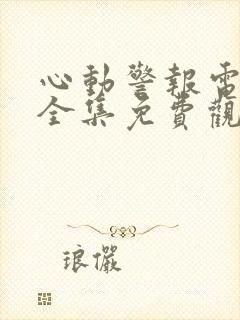 心動警報電
全集免費觀
琅儼